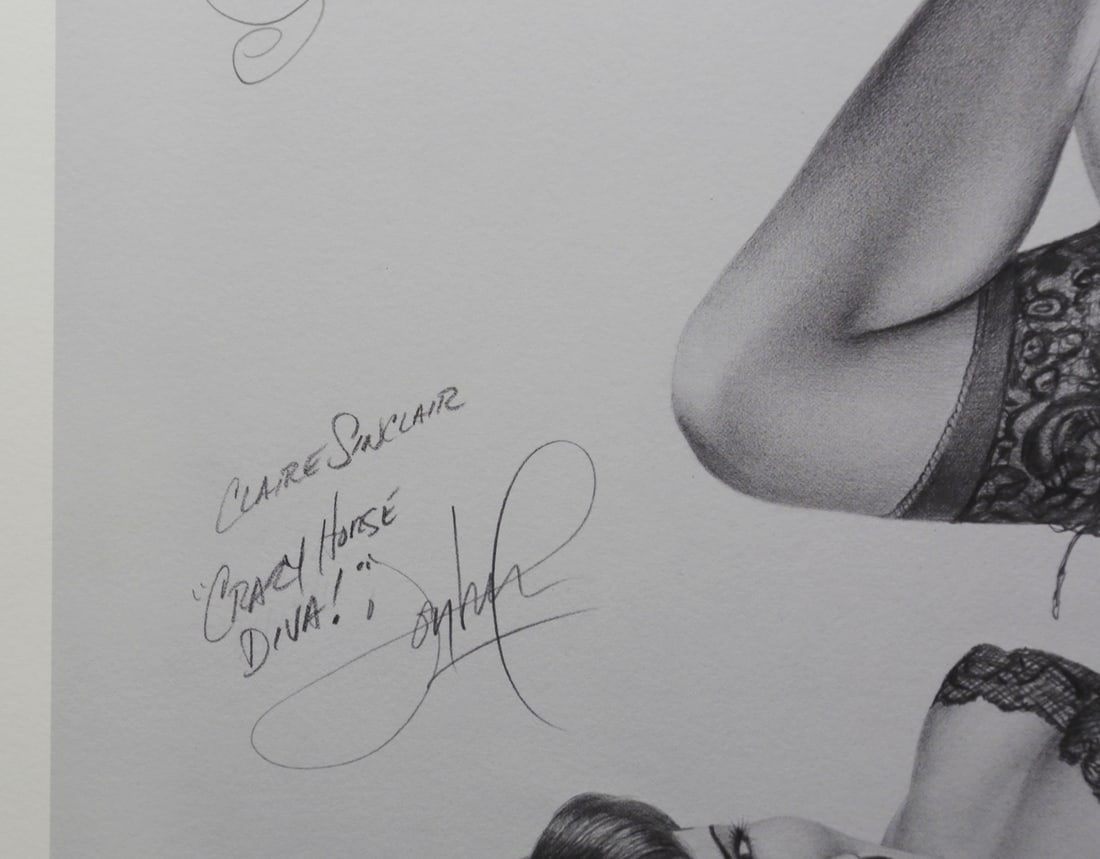 CLAIRE SINCLAIR
"CRAZY HORSE
DIVA!"